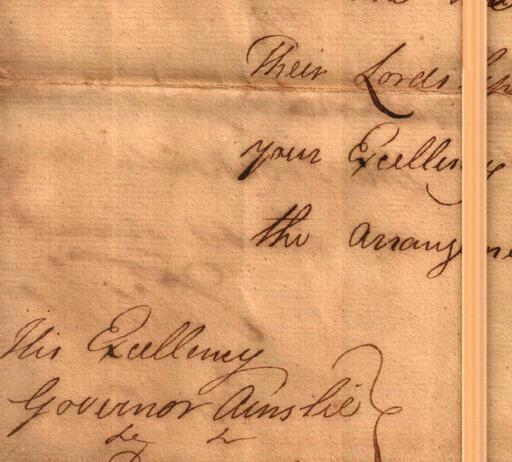 Their Lords
your Excellency
the arrangeme
His Excellency
Governor Ainslie
&c &c